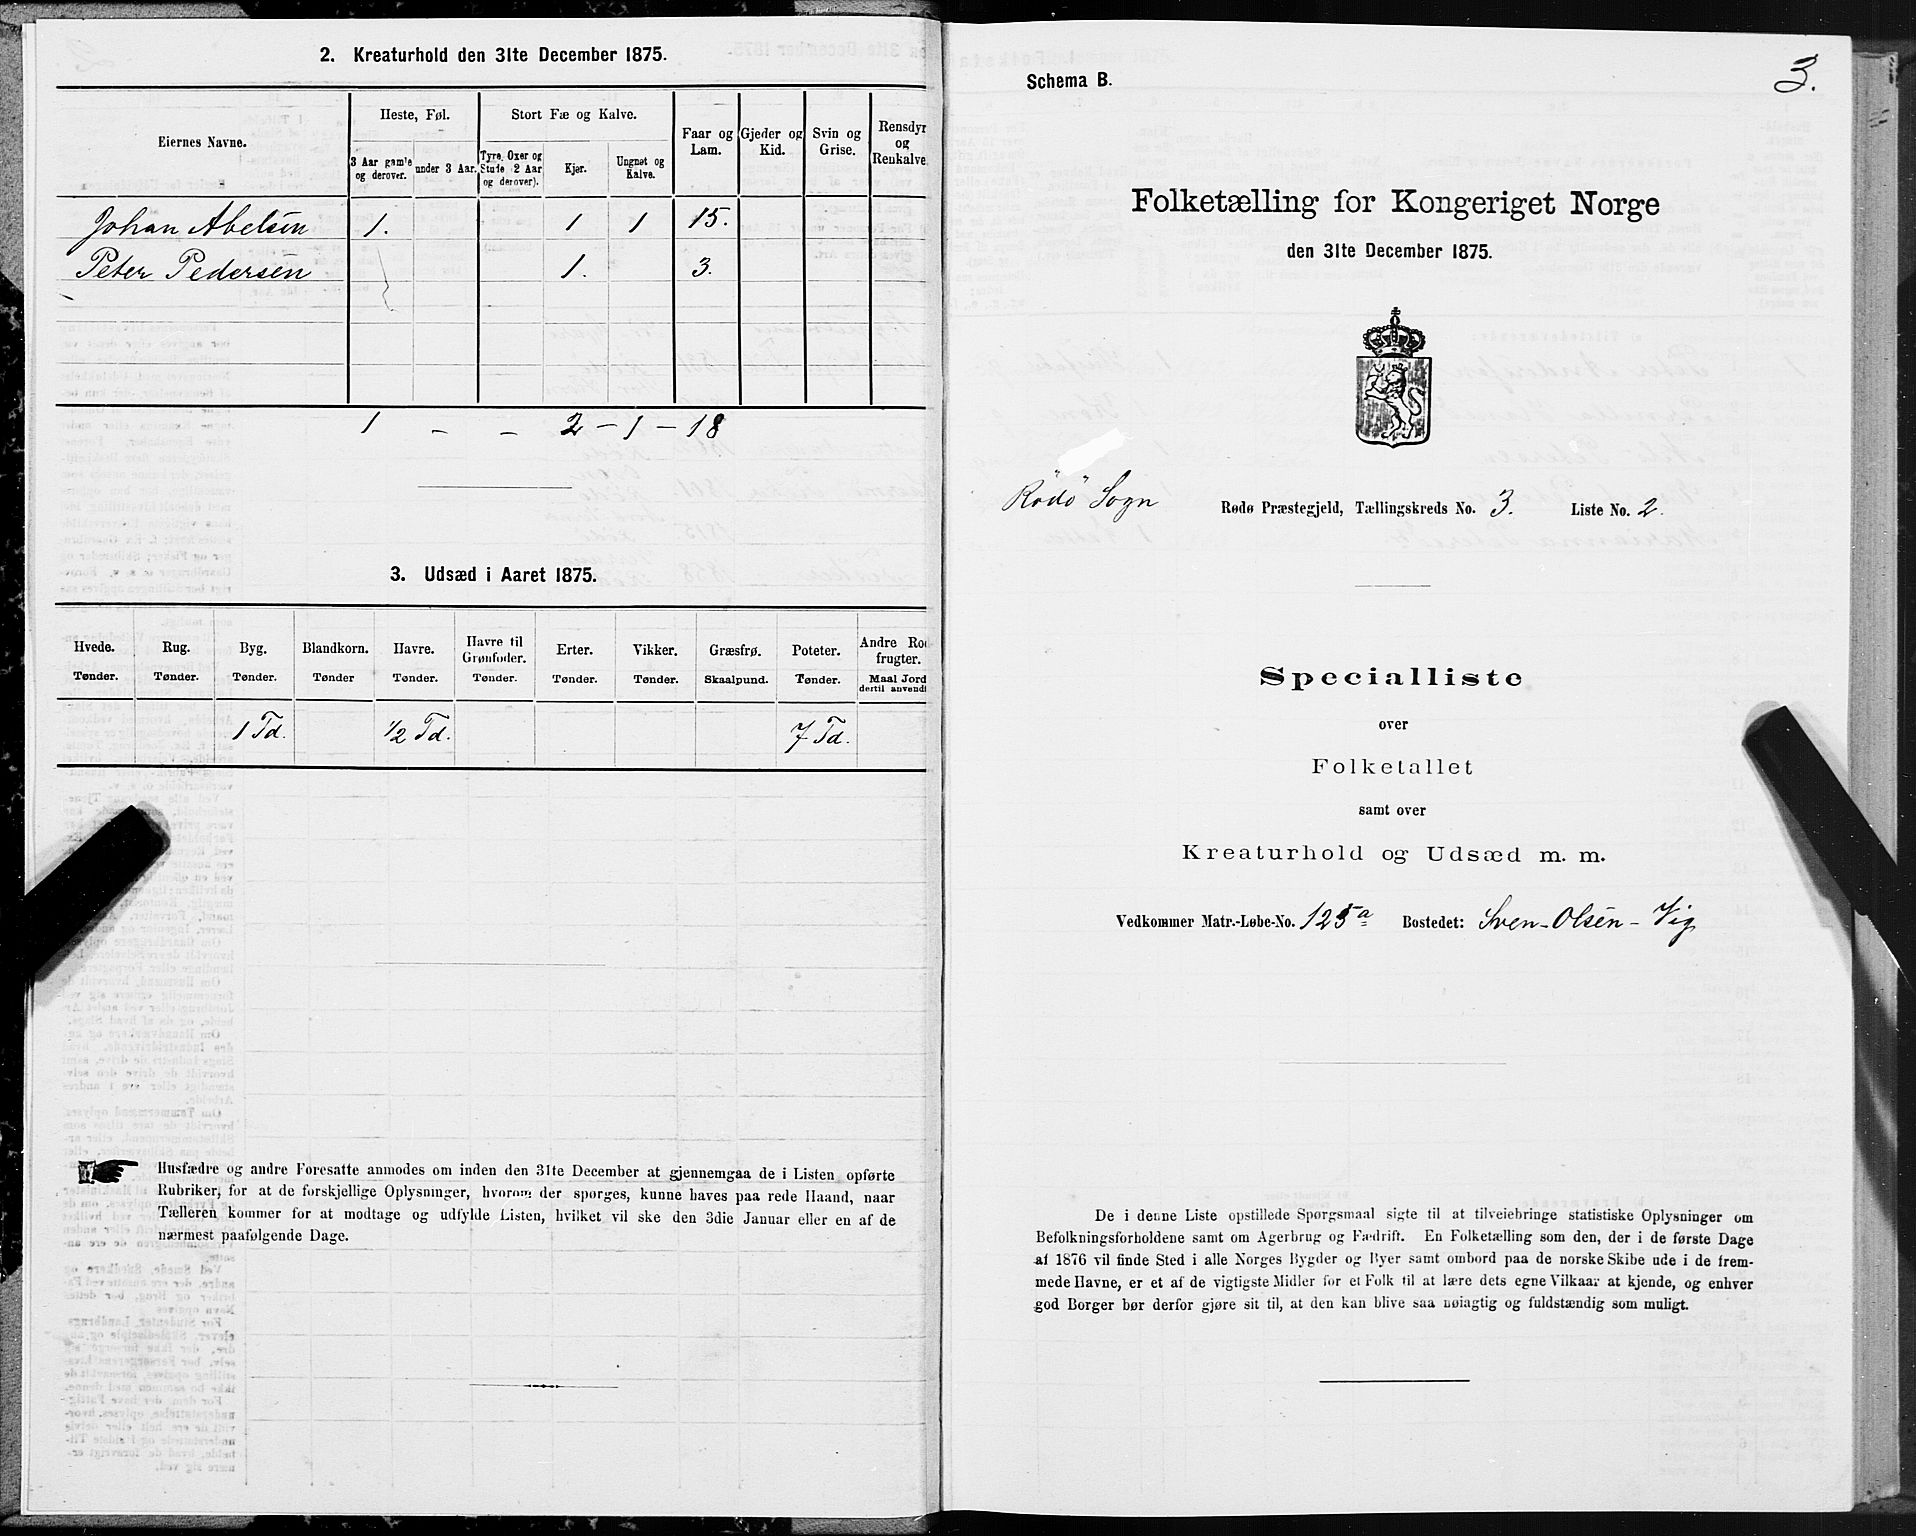 2. Kreaturhold den 31te December 1875.
Eiernes Navne.
Heste, Føl.
Stort Fæ og Kalve.
Faar og Lam.
Gjeder og Kid.
Svin og Grise.
Rensdyr og Renkalve.
3 Aar gamle og derover.
under 3 Aar.
Tyre, Oxer og Stude (2 Aar og derover).
Kjør.
Ungnøt og Kalve.
Johan Abelsen 1. 1 1 15.
Peter Pedersen 1. 3.
1 - - 2 - 1 - 18
3. Udsæd i Aaret 1875.
Hvede. Rug. Byg. Blandkorn. Havre. Havre til Grønfoder. Erter. Vikker. Græsfrø. Poteter. Andre Rodfrugter.
Tønder. Tønder. Tønder. Tønder Tønder. Tønder. Tønder. Tønder. Skaalpund. Tønder. Maal Jord dertil anvendt
1 Td. 1/2 Td. 7 Td.
Husfædre og andre Foresatte anmodes om inden den 31te December at gjennemgaa de i Listen opførte
Rubriker, for at de forskjellige Oplysninger, hvorom der spørges, kunne haves paa rede Haand, naar
Tælleren kommer for at modtage og udfylde Listen, hvilket vil ske den 3die Januar eller en af de
nærmest paafølgende Dage.
3.
Schema B.
Folketælling for Kongeriget Norge
den 31te December 1875.
Rödö Sogn Rødø Præstegjeld, Tællingskreds No. 3. Liste No. 2.
Specialliste
over
Folketallet
samt over
Kreaturhold og Udsæd m. m.
Vedkommer Matr.-Løbe-No. 125a Bostedet: Sven-Olsen-Vig
De i denne Liste opstillede Spørgsmaal sigte til at tilveiebringe statistiske Oplysninger om
Befolkningsforholdene samt om Agerbrug og Fædrift. En Folketælling som den, der i de første Dage
af 1876 vil finde Sted i alle Norges Bygder og Byer samt ombord paa de norske Skibe ude i de frem-
mede Havne, er et af de vigtigste Midler for et Folk til at lære dets egne Vilkaar at kjende, og enhver
god Borger bør derfor gjøre sit til, at den kan blive saa nøiagtig og fuldstændig som muligt.